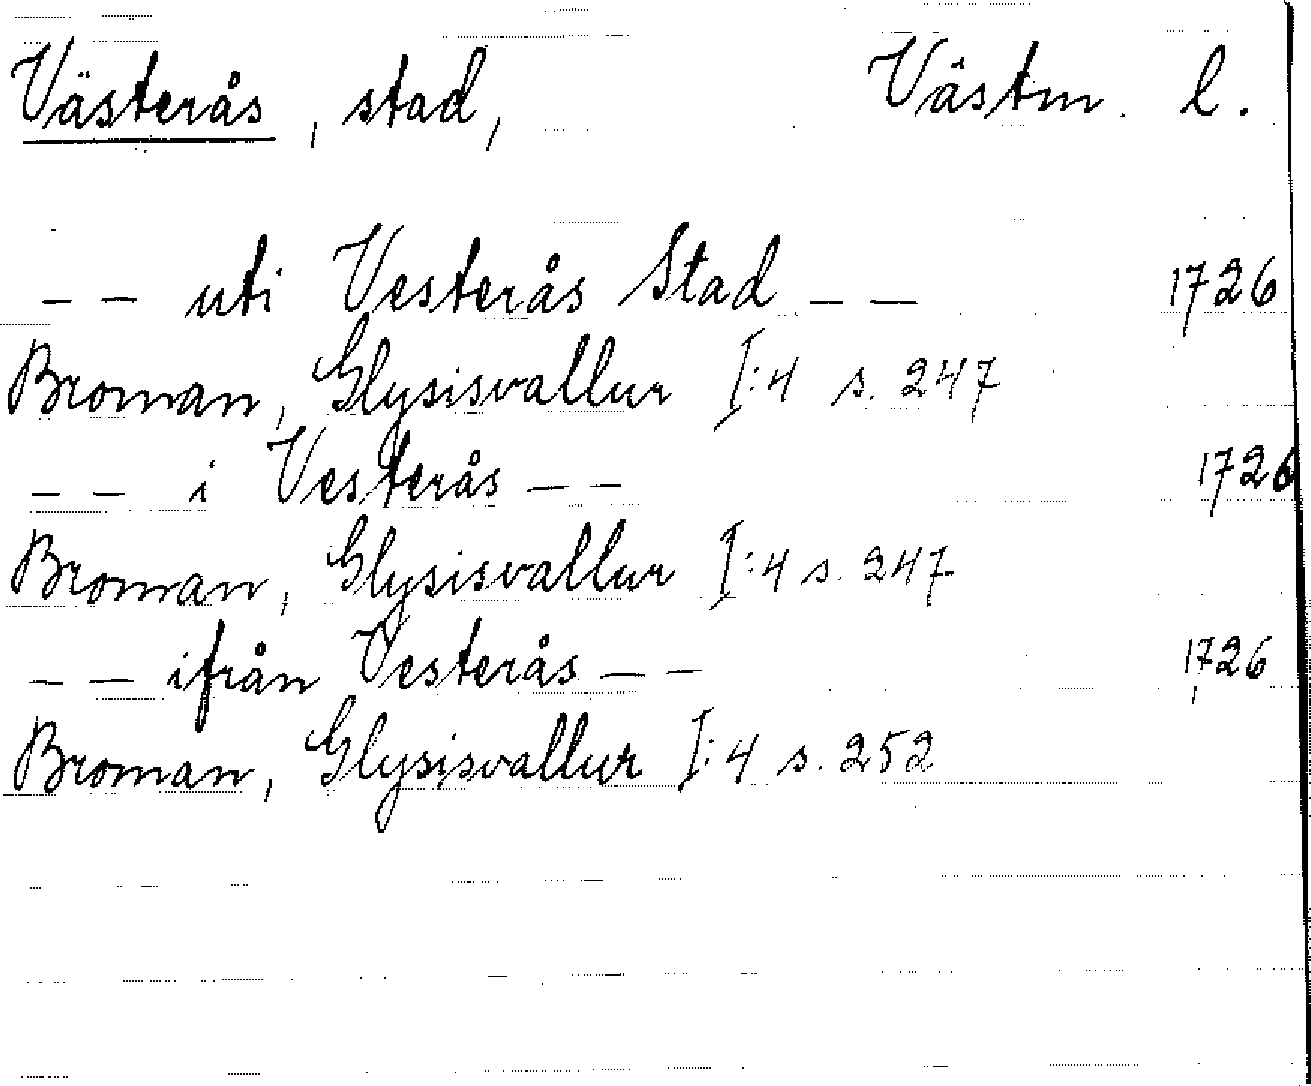 Västerås, stad, Västm. l.
– – uti Vesterås Stad – – 1726
Broman, Glysisvallur I:4 s. 247
– – i Vesterås – – 1726
Broman, Glysisvallur I:4 s. 247
– – ifrån Vesterås – – 1726
Broman, Glysisvallur I:4 s. 252